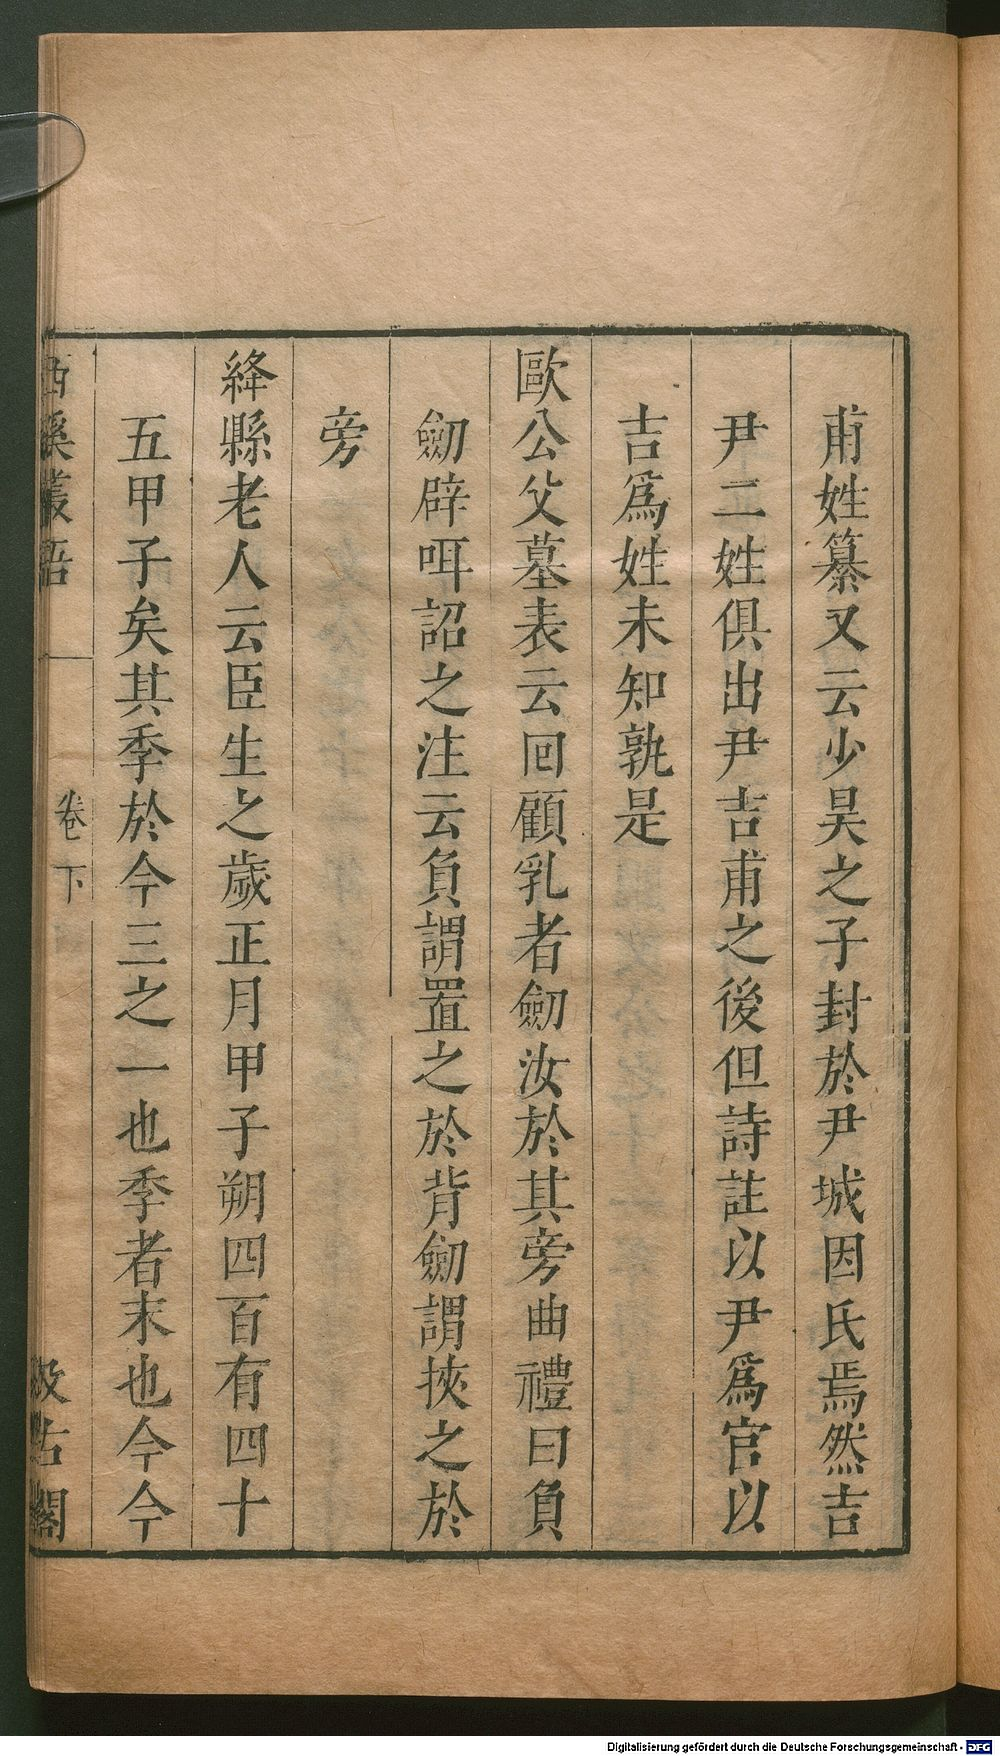 甫姓纂又云少昊之子封於尹城因氏焉然吉
尹二姓俱出尹吉甫之後但詩註以尹爲官以
吉爲姓未知孰是
歐公父墓表云回顧乳者劒汝於其旁曲禮曰負
劒辟咡詔之注云負謂置之於背劒謂挾之於
旁
絳縣老人云臣生之歲正月甲子朔四百有四十
五甲子矣其季於今三之一也季者末也今今
西溪叢語
卷下
汲古閣
Digitalisierung gefördert durch die Deutsche Forschungsgemeinschaft - DFG